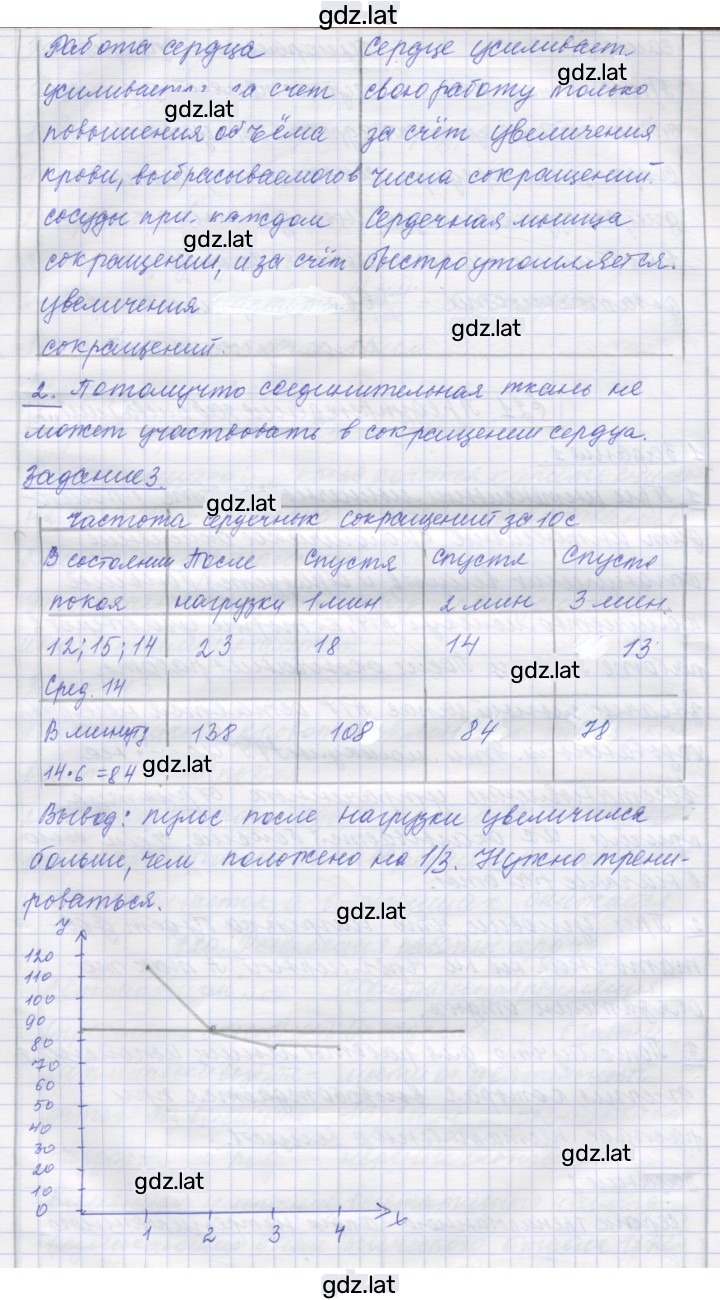 gdz.lat
Работа сердца
усиливается за счет
повышения объёма
крови, выбрасываемого в
сосуды при каждом
сокращении, и за счёт
увеличения
сокращений.
Сердце усиливает
свою работу только
за счёт увеличения
числа сокращений.
Сердечная мышца
быстро утомляется.
gdz.lat
gdz.lat
gdz.lat
gdz.lat
2. Потомучто соединительная ткань не
может участвовать в сокращении сердца.
Задание 3.
gdz.lat
Частота сердечных сокращений за 10с
В состоянии После Спустя Спустя Спустя
покоя нагрузки 1 мин 2 мин 3 мин.
12; 15; 14 23 18 14 13
gdz.lat
Сред. 14
В минуту 138 108 84 78
14·6 =84
gdz.lat
Вывод: пульс после нагрузки увеличился
больше, чем положено на 1/3. Нужно трени-
роваться.
gdz.lat
y
120
110
100
90
80
70
60
50
40
30
20
10
0
gdz.lat
gdz.lat
1 2 3 4 x
gdz.lat